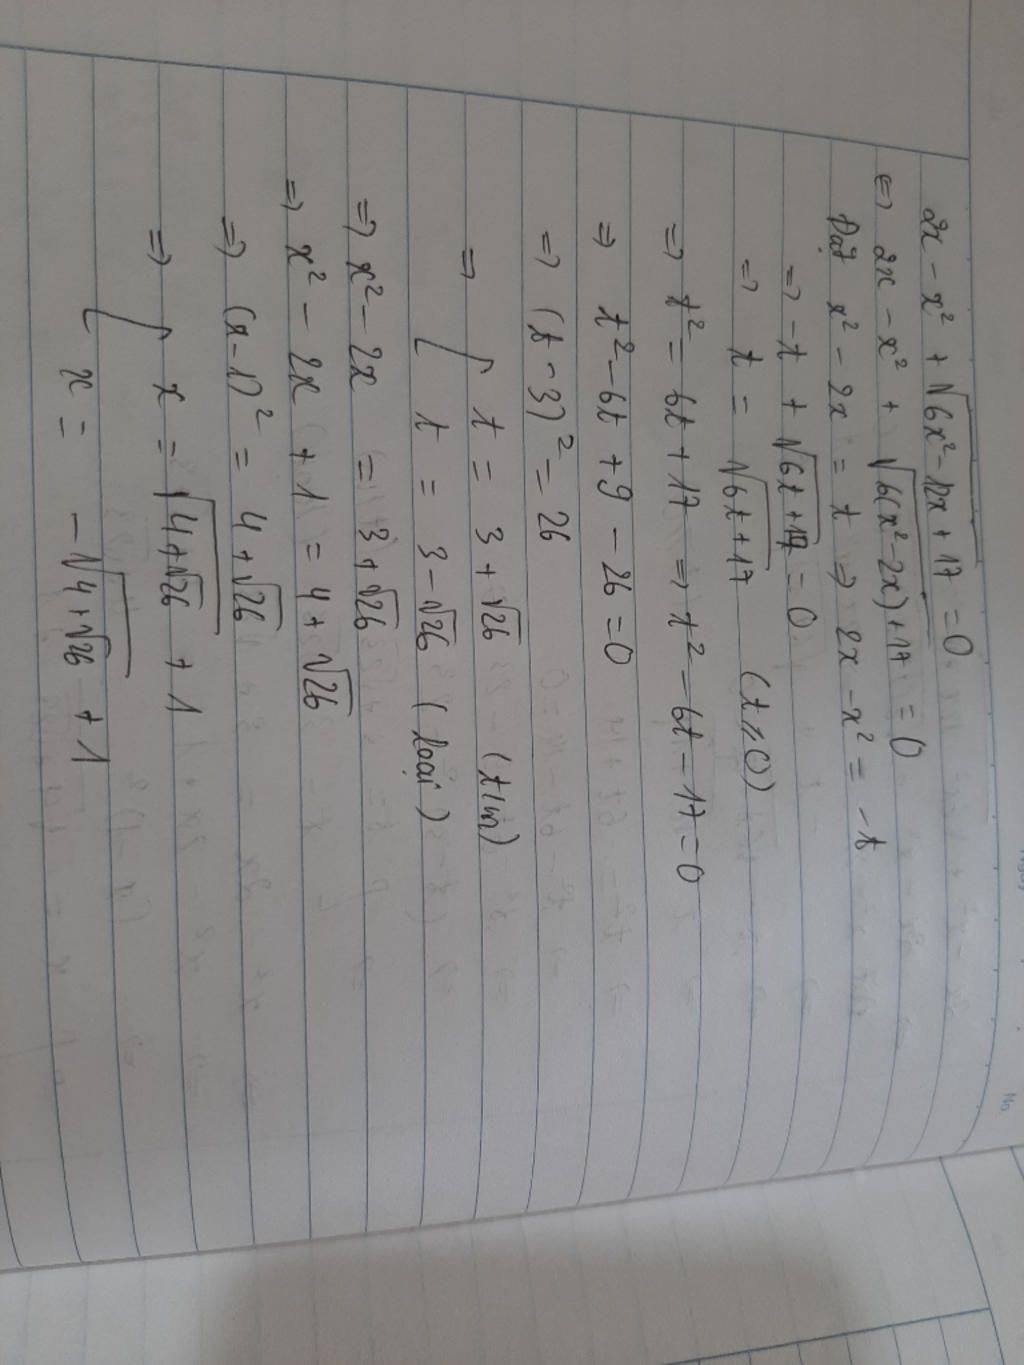 2x - x² + √(6x² - 12x + 17) = 0
⇔ 2x - x² + √(6(x² - 2x) + 17) = 0
Đặt x² - 2x = t ⇒ 2x - x² = -t
⇒ -t + √(6t + 17) = 0
⇒ t = √(6t + 17) (t ≥ 0)
⇒ t² = 6t + 17 ⇒ t² - 6t - 17 = 0
⇒ t² - 6t + 9 - 26 = 0
⇒ (t - 3)² = 26
⇒ [ t = 3 + √26 (t/m)
t = 3 - √26 (loại)
⇒ x² - 2x = 3 + √26
⇒ x² - 2x + 1 = 4 + √26
⇒ (x - 1)² = 4 + √26
⇒ [ x = √(4 + √26) + 1
x = -√(4 + √26) + 1
No.